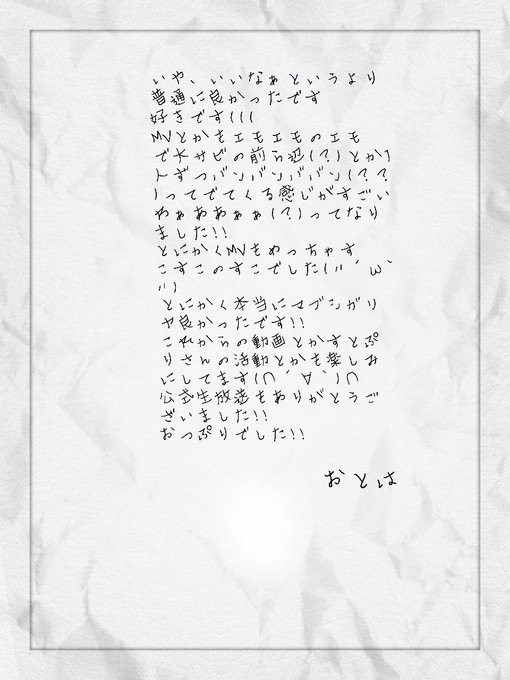 いや、いいなぁというより
普通に良かったです
好きです(((
MVとかもエモエモのエモ
で大サビの前ら辺(?)とか1
人ずつバンバンババン(??
)ってでてくる感じがすごい
わぁああぁぁ(?)ってなり
ました!!
とにかくMVもめっちゃす
こすこのすこでした(〃´ω`
〃)
とにかく本当にマブシがり
や良かったです!!
これからの動画とかすとぷ
りさんの活動とかも楽しみ
にしてます(∩´∀`)∩
公式生放送もありがとうご
ざいました!!
おっぷりでした!!
おとは